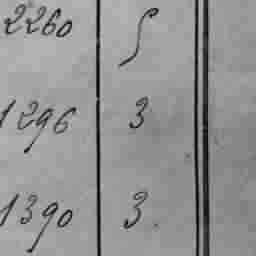 2260 5
1296 3
1390 3.